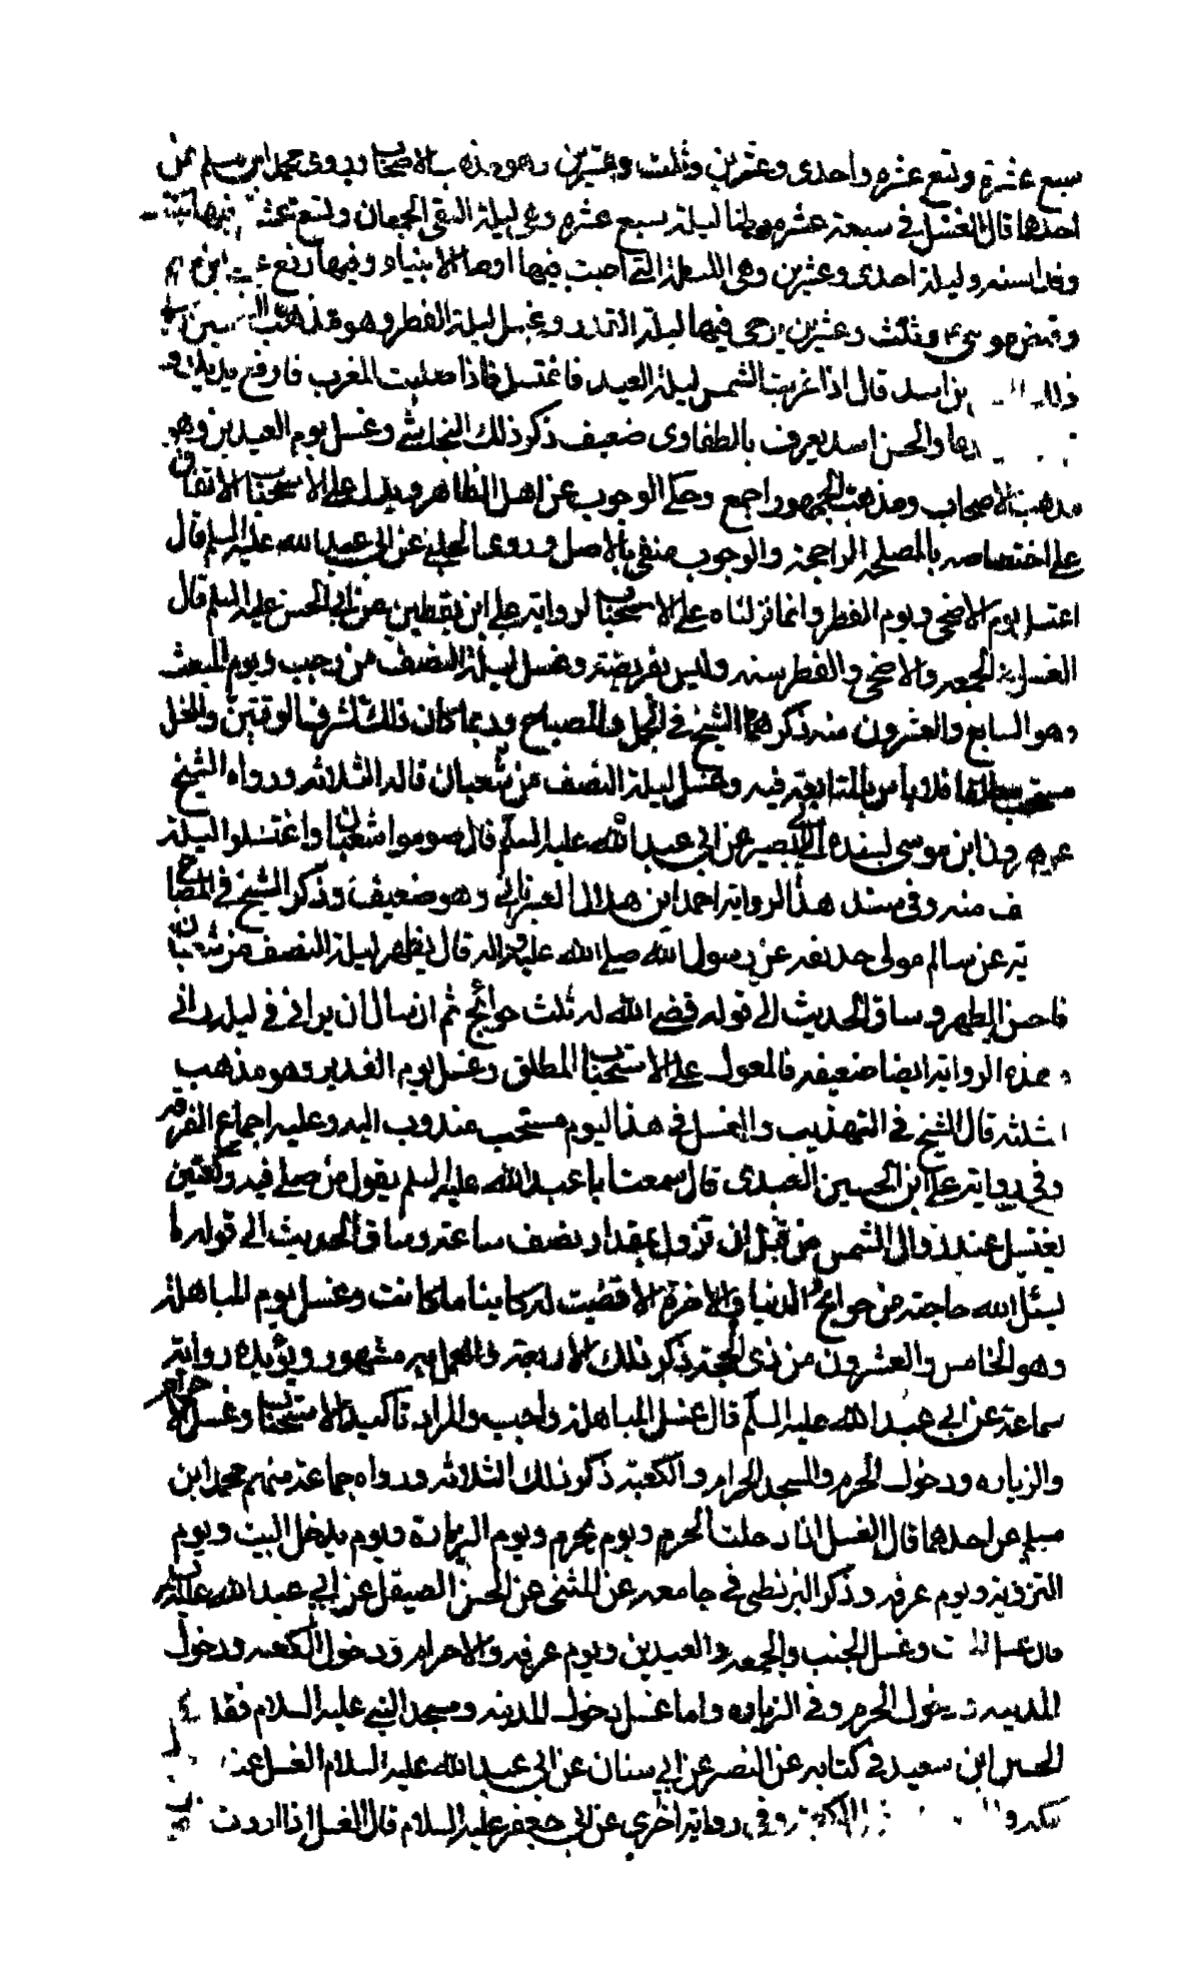 سبع عشرة وتسع عشره واحدى وعشرين وثلث وعشرين وهو مذهب الاصحاب وروى محمد ابن مسلم عن
احدهما قال الغسل في سبعة عشر موطنا ليلة سبع عشره وهى ليلة التقى الجمعان وتسع عشرة فيها
وفد السنه وليلة احدى وعشرين وهى الليلة التي اصيب فيها اوصياء الانبياء وفيها رفع عيسى ابن مريم
وقبض موسى وثلث وعشرين يرجى فيها ليلة القدر وغسل ليلة الفطر وهو مذهب
بن راشد قال اذا غربت الشمس ليلة العيد فاغتسل فاذا صليت المغرب فارفع يديك و
والحسن راشد يعرف بالطفاوى ضعيف ذكر ذلك النجاشي وغسل يوم العيدين وهو
مذهب الاصحاب ومذهب الجمهور اجمع وحكى الوجوب عن اهل الظاهر ويدل على الاستحباب الاتفاق
على اختصاصه بالمصلحة الراجحة والوجوب منفي بالاصل وروى الحلبي عن ابى عبد الله عليه السلم قال
اغتسل يوم الاضحى ويوم الفطر وانما نزلناه على الاستحباب لرواية على ابن يقطين عن ابى الحسن عليه السلم قال
الغسل في الجمعه والاضحى والفطر سنه وليس بفريضة وغسل ليلة النصف من رجب ويوم المبعث
وهو السابع والعشرون منه ذكرهما الشيخ في الجمل والمصباح وربما كان ذلك لشرف الوقتين والغسل
مستحب مطلقا فلا باس بالمتابعة فيه وغسل ليلة النصف من شعبان قاله الثلاثه ورواه الشيخ
عن هرون ابن موسى بسنده الى ابي بصير عن ابى عبد الله عليه السلم قال صوموا شعبان واغتسلوا ليلة
ف منه وفى سند هذه الرواية احمد ابن هلال العبرتائي وهو ضعيف وذكر الشيخ في المصباح
ية عن سالم مولى حذيفه عن رسول الله صلى الله عليه واله قال من تطهر ليلة النصف من شعبان
فاحسن الطهر وساق الحديث الى قوله قضى الله له ثلث حوائج ثم ان سال ان يراني في ليلة راني
وهذه الرواية ايضا ضعيفه فالمعول على الاستحباب المطلق وغسل يوم الغدير وهو مذهب
الثلثه قال الشيخ في التهذيب والغسل في هذا اليوم مستحب مندوب اليه وعليه اجماع الفرقه
وفي رواية على ابن الحسين العبدى قال سمعت ابا عبد الله عليه السلم يقول من صلى فيه ركعتين
يغتسل عند زوال الشمس من قبل ان تزول بمقدار نصف ساعة وساق الحديث الى قوله ما
يسئل الله حاجة من حوائج الدنيا والاخرة الا قضيت له كاينا ما كانت وغسل يوم المباهلة
وهو الخامس والعشرون من ذى الحجة ذكر ذلك الاربعة والعمل به مشهور ويؤيده رواية
سماعة عن ابى عبد الله عليه السلم قال غسل المباهلة واجب والمراد تاكيد الاستحباب وغسل الاحرام
والزياره ودخول الحرم والمسجد الحرام والكعبة ذكر ذلك الثلاثه ورواه جماعة منهم محمد ابن
مسلم عن احدهما قال الغسل اذا دخلت الحرم ويوم تحرم ويوم الزيارة ويوم يدخل البيت ويوم
التروية ويوم عرفه وذكر البزنطى في جامعه عن المثنى عن الحسن الصيقل عن ابي عبد الله عليه
وغسل الجنب والجمعه والعيدين ويوم عرفه والاحرام ودخول الكعبه ودخول
المدينه ودخول الحرم وفى الزياره واما غسل دخول المدينه ومسجد النبي عليه السلام فقد
الحسين ابن سعيد في كتابه عن النضر عن ابي سنان عن ابى عبد الله عليه السلام الغسل عند
وفي رواية اخرى عن ابى جعفر عليه السلام قال الغسل اذا اردت